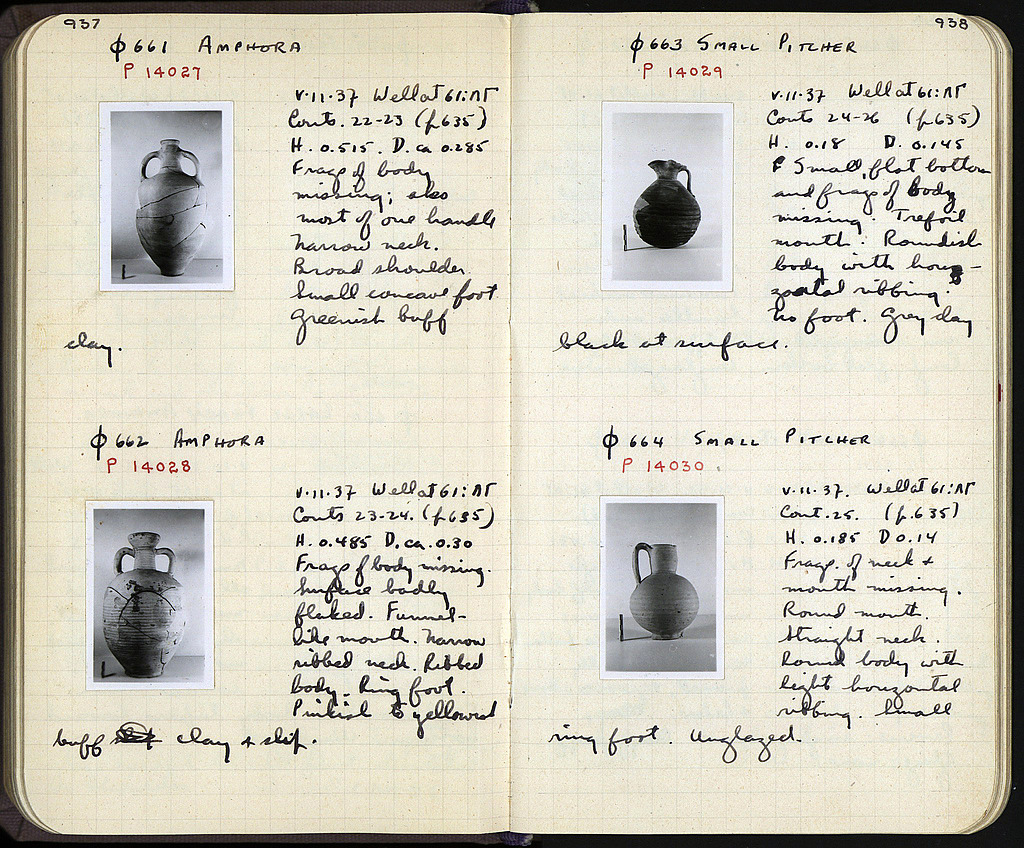 937
Φ661 AMPHORA
P 14027
V·11·37 Well at 61:ΛΓ
Conts. 22-23 (p.635)
H. 0.515. D. ca 0.285
Frags of body
missing; also
most of one handle
Narrow neck.
Broad shoulder.
Small concave foot
Greenish buff
clay.
Φ662 AMPHORA
P 14028
V·11·37 Well at 61:ΛΓ
Conts 23-24. (p.635)
H. 0.485 D. ca. 0.30
Frags of body missing.
Surface badly
flaked. Funnel-
like mouth. Narrow
ribbed neck. Ribbed
body. Ring foot.
Pinkish to yellowish
buff clay + slip.
938
Φ663 SMALL PITCHER
P 14029
V·11·37 Well at 61:ΛΓ
Conts 24-26 (p.635)
H. 0.18 D. 0.145
Small, flat bottom
and frags of body
missing. Trefoil
mouth. Roundish
body with hori-
zontal ribbing.
No foot. Grey clay
black at surface.
Φ664 SMALL PITCHER
P 14030
V·11·37. Well at 61:ΛΓ
Cont. 25. (p.635)
H. 0.185 D 0.14
Frags. of neck +
mouth missing.
Round mouth.
Straight neck.
Round body with
light horizontal
ribbing. Small
ring foot. Unglazed.